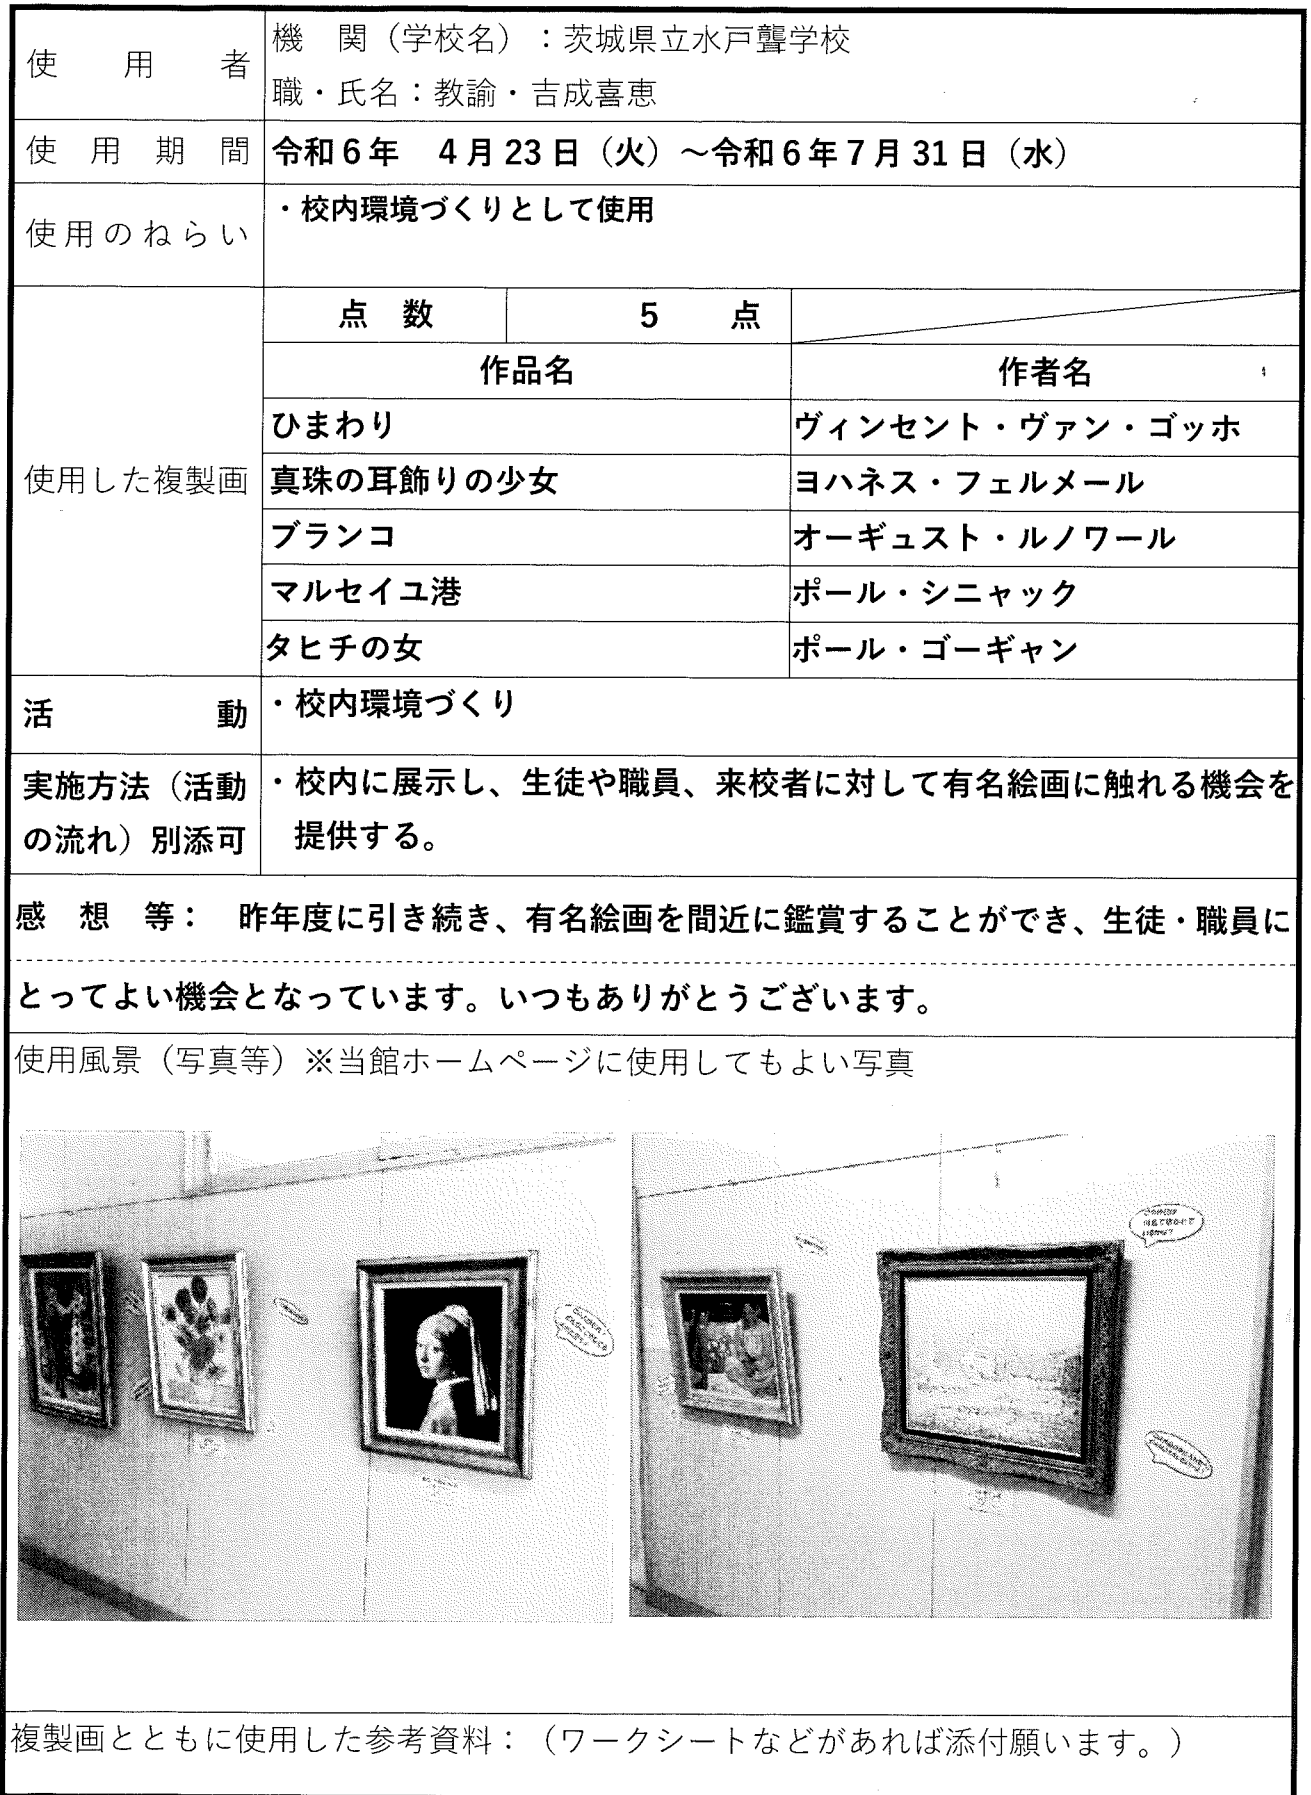 使用者
機　関（学校名）：茨城県立水戸聾学校
職・氏名：教諭・吉成喜恵
使用期間
令和６年　４月23日（火）～令和６年７月31日（水）
使用のねらい
・校内環境づくりとして使用
使用した複製画
点　数
5　点
作品名
作者名
ひまわり
ヴィンセント・ヴァン・ゴッホ
真珠の耳飾りの少女
ヨハネス・フェルメール
ブランコ
オーギュスト・ルノワール
マルセイユ港
ポール・シニャック
タヒチの女
ポール・ゴーギャン
活動
・校内環境づくり
実施方法（活動
の流れ）別添可
・校内に展示し、生徒や職員、来校者に対して有名絵画に触れる機会を
提供する。
感　想　等：　昨年度に引き続き、有名絵画を間近に鑑賞することができ、生徒・職員に
とってよい機会となっています。いつもありがとうございます。
使用風景（写真等）※当館ホームページに使用してもよい写真
複製画とともに使用した参考資料：（ワークシートなどがあれば添付願います。）